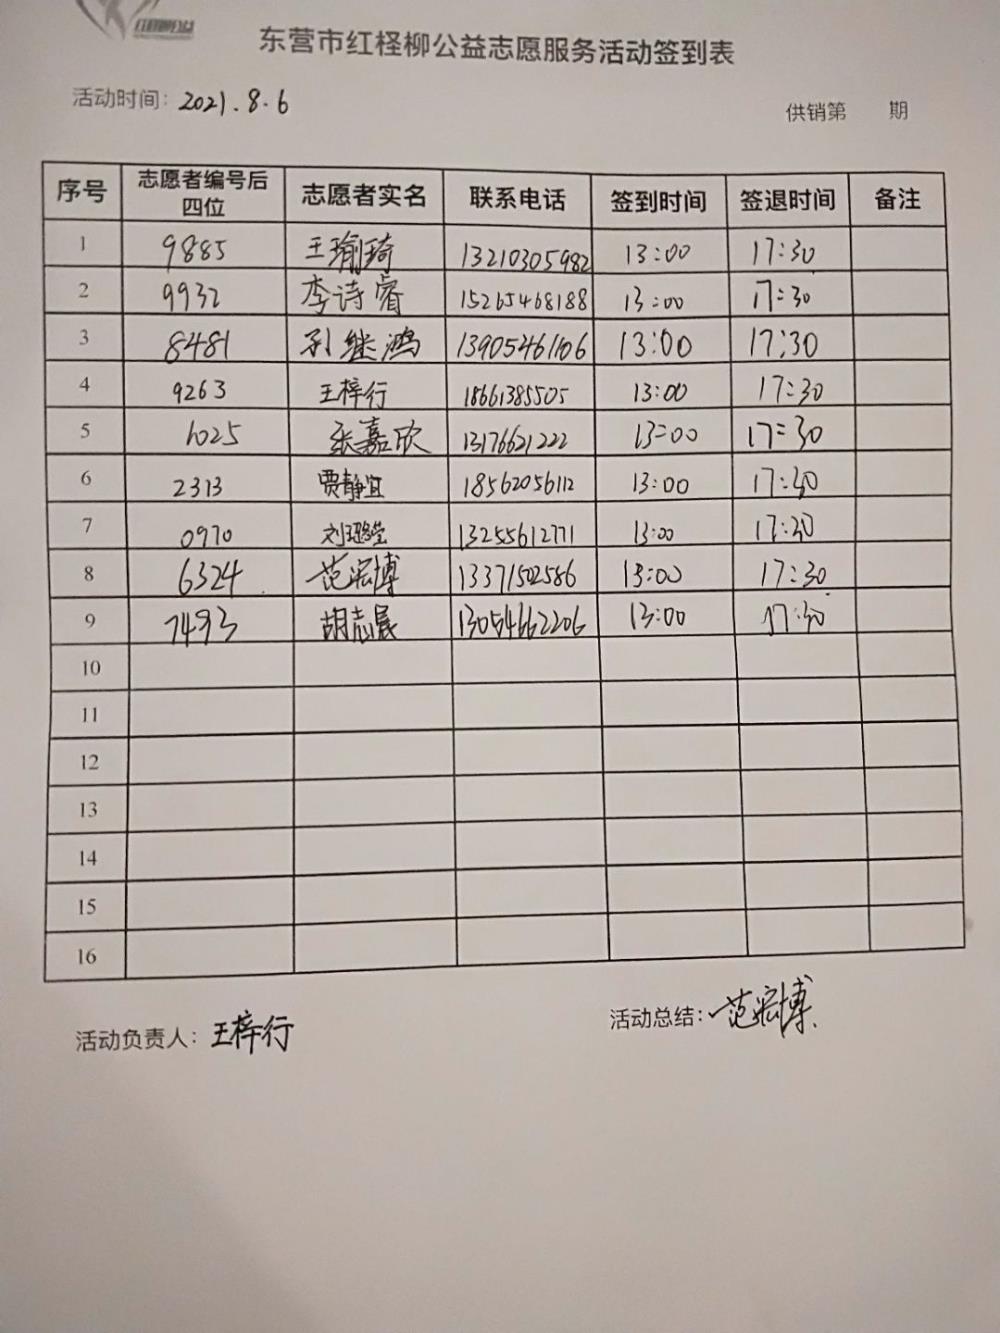 东营市红柽柳公益志愿服务活动签到表
活动时间：2021.8.6
供销第 期
序号 志愿者编号后四位 志愿者实名 联系电话 签到时间 签退时间 备注
1 9885 王瑜琦 13210305982 13:00 17:30
2 9932 李诗睿 15265468188 13:00 17:30
3 8481 孙继鸿 13905461106 13:00 17:30
4 9263 王梓行 18661385505 13:00 17:30
5 1025 张嘉欣 13176621222 13:00 17:30
6 2313 贾静宜 18562056112 13:00 17:30
7 0970 刘璐莹 13255612771 13:00 17:30
8 6324 范宏博 13371502586 13:00 17:30
9 7493 胡志晟 13054662206 13:00 17:30
10
11
12
13
14
15
16
活动负责人：王梓行
活动总结：范宏博